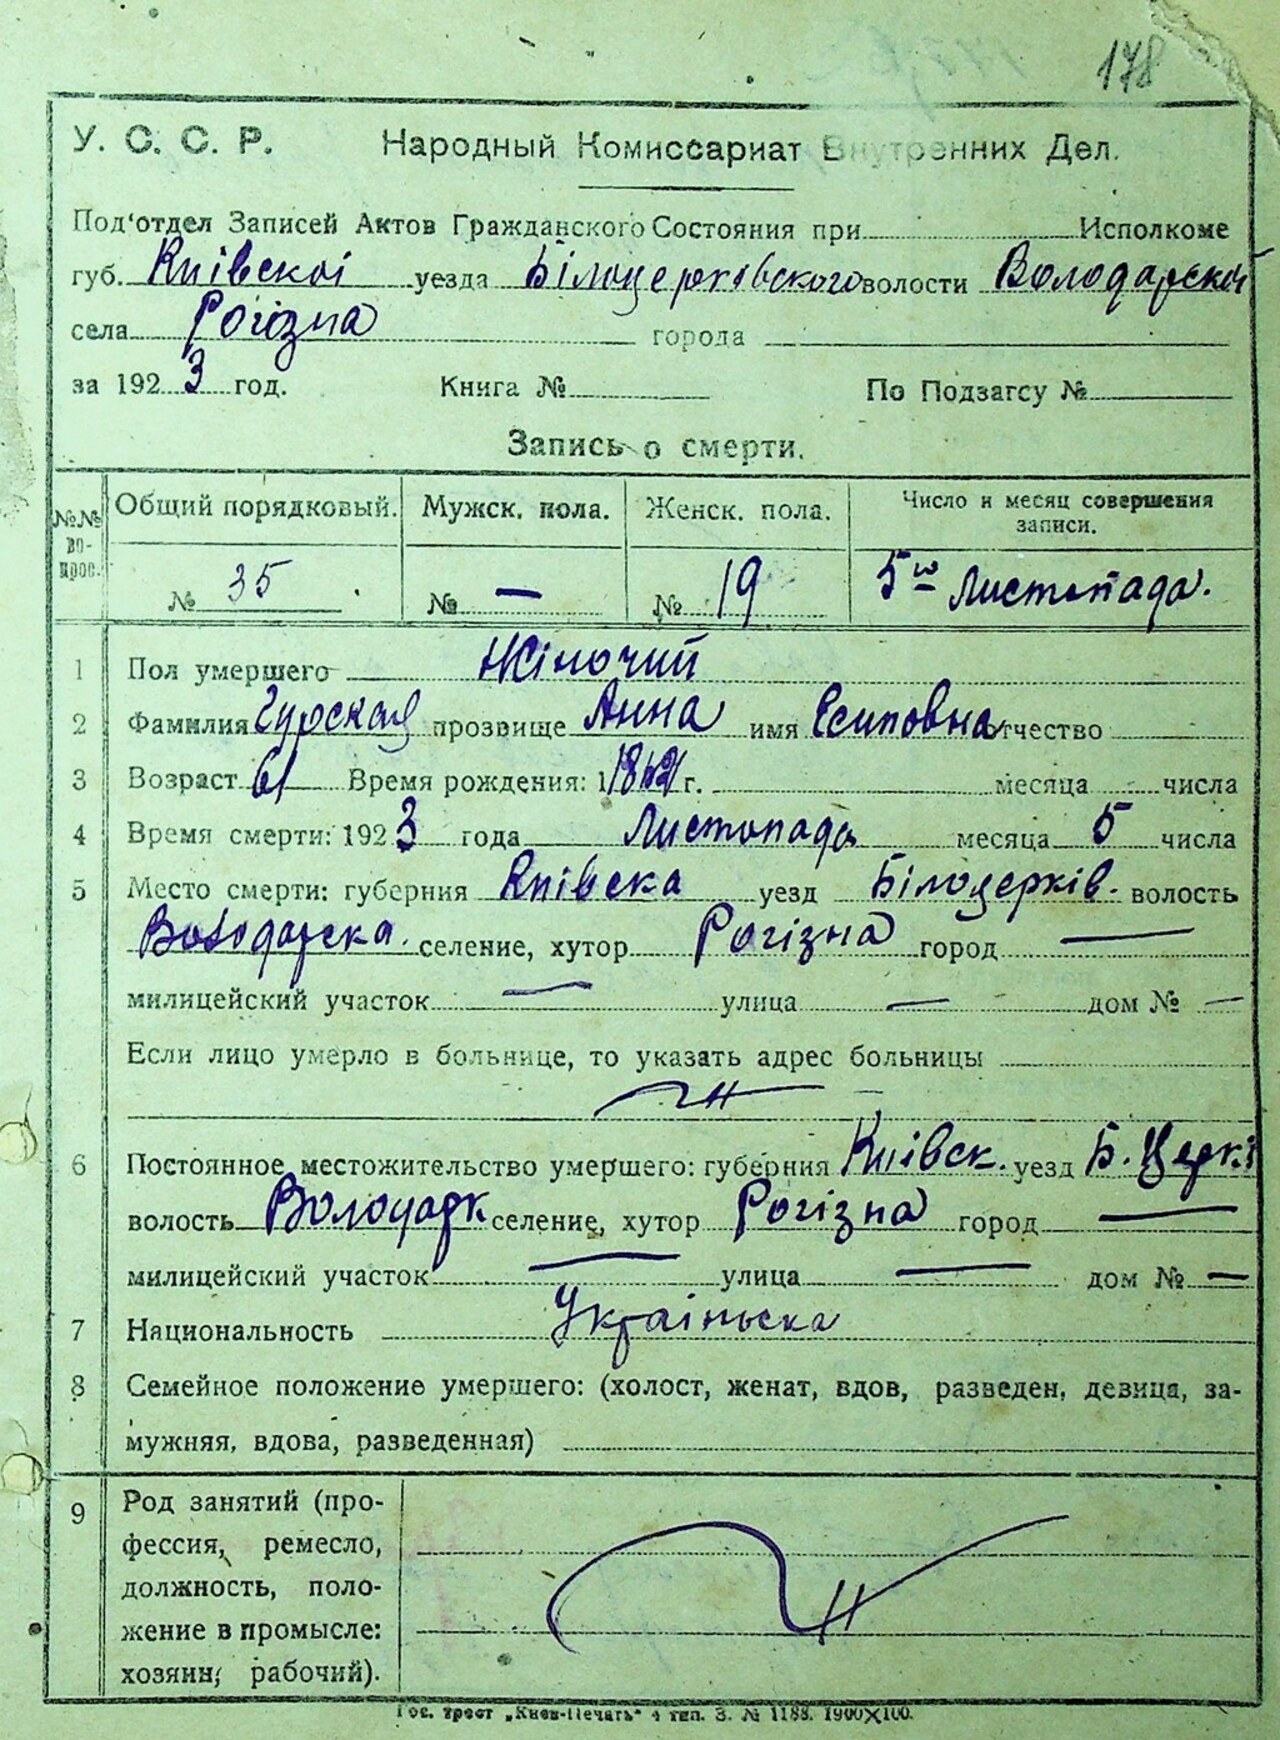 178
У. С. С. Р. Народный Комиссариат Внутренних Дел.
Под'отдел Записей Актов Гражданского Состояния при Исполкоме
губ. Київскоі уезда Білоцерковского волости Володарскоі
села Рогізна города
за 1923 год. Книга № По Подзагсу №
Запись о смерти.
№№ во-прос. Общий порядковый. Мужск. пола. Женск. пола. Число и месяц совершения записи.
№ 35 № — № 19 5го Листопада.
1 Пол умершего Жіночий
2 Фамилия Гурская прозвище Анна имя Есиповна отчество
3 Возраст 61 Время рождения: 1 г. месяца числа
4 Время смерти: 1923 года Листопада месяца 5 числа
5 Место смерти: губерния Київска уезд Білоцерків. волость
Володарска. селение, хутор Рогізна город —
милицейский участок — улица — дом № —
Если лицо умерло в больнице, то указать адрес больницы
6 Постоянное местожительство умершего: губерния Київск. уезд Б. Церкі
волость Володарк селение, хутор Рогізна город —
милицейский участок — улица — дом № —
7 Национальность Украіньска
8 Семейное положение умершего: (холост, женат, вдов, разведен, девица, за-
мужняя, вдова, разведенная)
9 Род занятий (про-
фессия, ремесло,
должность, поло-
жение в промысле:
хозяин, рабочий).
Гос. трест „Киев-Печать" 4 тип. З. № 1188. 1900X100.